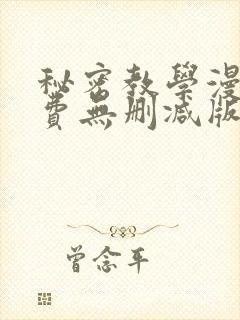 秘密教學漫
費無刪減版
曾念平